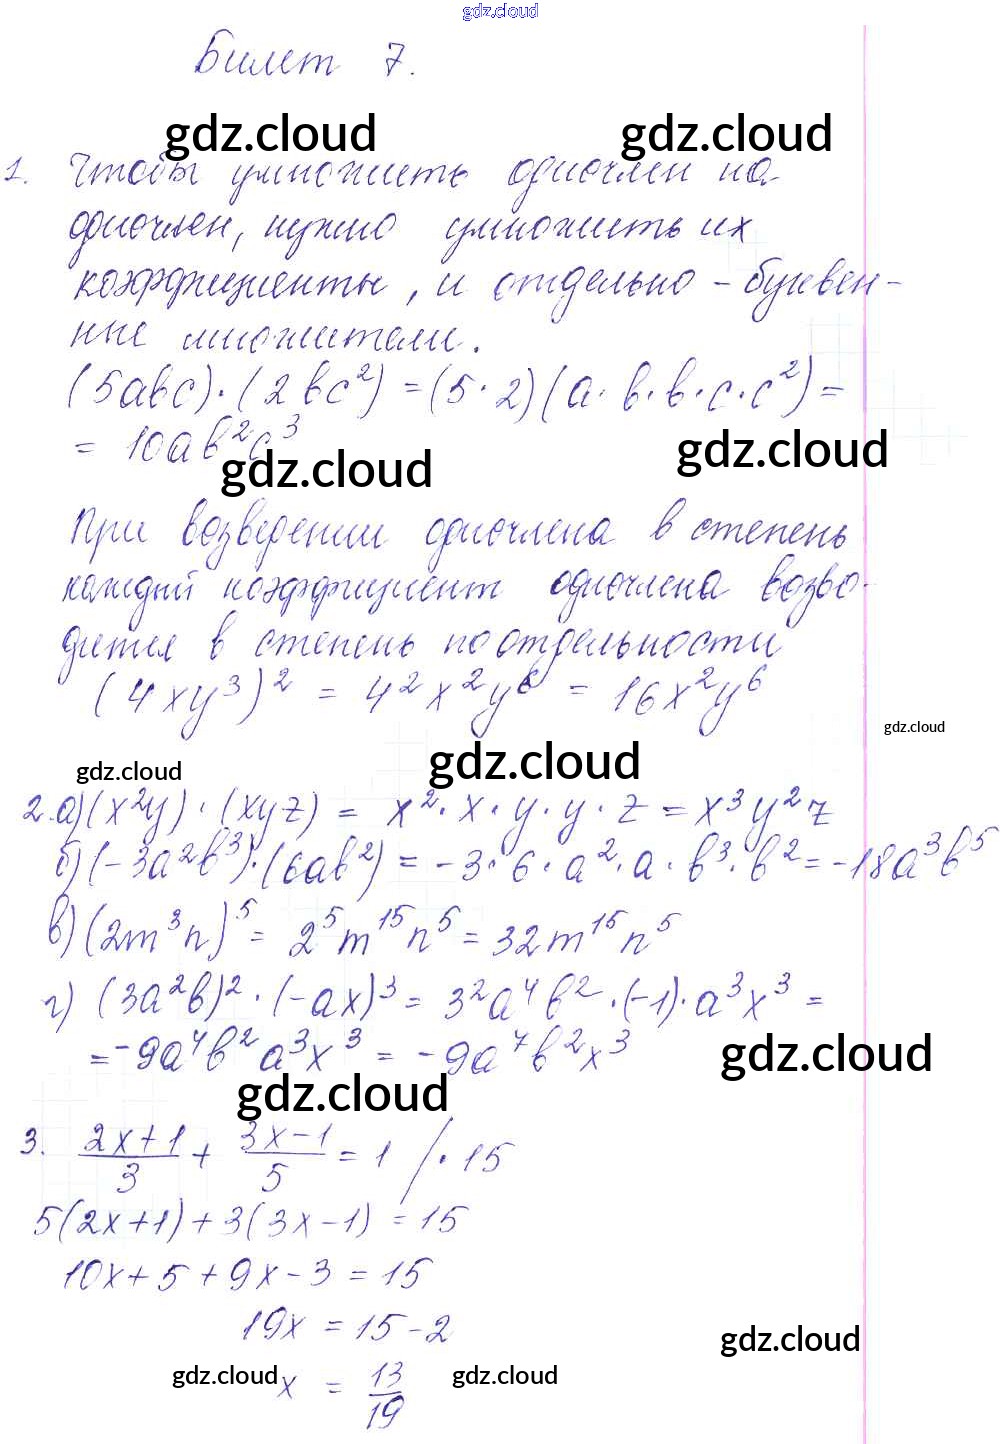 gdz.cloud
Билет 7.
gdz.cloud gdz.cloud
1. Чтобы умножить одночлен на
одночлен, нужно умножить их
коэффициенты, и отдельно - буквен-
ные множители.
(5abc)·(2bc²) = (5·2)(a·b·b·c·c²) =
= 10ab²c³
gdz.cloud gdz.cloud
При возведении одночлена в степень
каждый коэффициент одночлена возво-
дится в степень по отдельности
(4xy³)² = 4²x²y⁶ = 16x²y⁶
gdz.cloud
gdz.cloud gdz.cloud
2. а) (x²y)·(xyz) = x²·x·y·y·z = x³y²z
б) (-3a²b³)·(6ab²) = -3·6·a²·a·b³·b² = -18a³b⁵
в) (2m³n)⁵ = 2⁵m¹⁵n⁵ = 32m¹⁵n⁵
г) (3a²b)²·(-ax)³ = 3²a⁴b²·(-1)·a³x³ =
= -9a⁴b²a³x³ = -9a⁷b²x³
gdz.cloud gdz.cloud
3. (2x+1)/3 + (3x-1)/5 = 1 /·15
5(2x+1)+3(3x-1) = 15
10x+5+9x-3 = 15
19x = 15-2
gdz.cloud
gdz.cloud gdz.cloud
x = 13/19